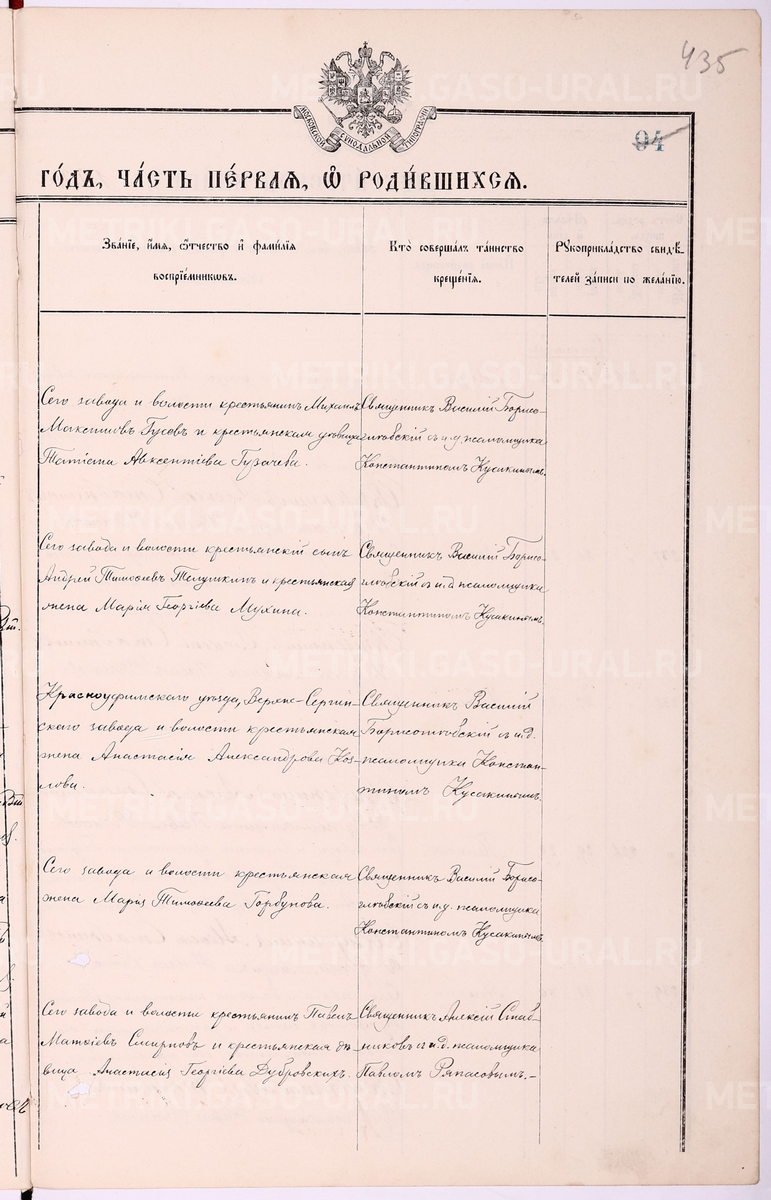 435
94
МОСКОВСКОЙ СѴНОДАЛЬНОЙ ТИПОГРАФІИ
ГО́ДЪ, ЧА́СТЬ ПЕ́РВАЯ, Ѽ РОДИ́ВШИХСЯ.
Зва́нїе, и҆́мѧ, ѻ҆́тчество и҆ фами́лїѧ
воспрїе́мникѡвъ.
Кто̀ соверша́лъ та́инство
креще́нїѧ.
Рꙋкоприкла́дство свидѣ́-
телей за́писи по жела́нїю.
Сего завода и волости крестьянинъ Михаилъ
Максимовъ Гусевъ и крестьянская дѣвица
Таисія Авксентіева Гузачева.
Священникъ Василій Борисо-
глѣбскій съ и.д. псаломщика
Константиномъ Кусакинымъ.
Сего завода и волости крестьянскій сынъ
Андрей Тимоѳеевъ Телушкинъ и крестьянская
жена Марія Георгіева Мухина.
Священникъ Василій Борисо-
глѣбскій съ и.д. псаломщика
Константиномъ Кусакинымъ.
Красноуфимскаго уѣзда, Верхне-Сергин-
скаго завода и волости крестьянская
жена Анастасія Александрова Коз-
лова.
Священникъ Василій
Борисоглѣбскій съ и.д.
псаломщика Констан-
тиномъ Кусакинымъ.
Сего завода и волости крестьянская
жена Марія Тимоѳеева Горбунова.
Священникъ Василій Борисо-
глѣбскій съ и.д. псаломщика
Константиномъ Кусакинымъ.
Сего завода и волости крестьянинъ Павелъ
Матвѣевъ Смирновъ и крестьянская дѣ-
вица Анастасія Георгіева Дубровскихъ.
Священникъ Алексій Стаб-
никовъ съ и.д. псаломщика
Павломъ Ряпасовымъ.-
METRIKI.GASO-URAL.RU